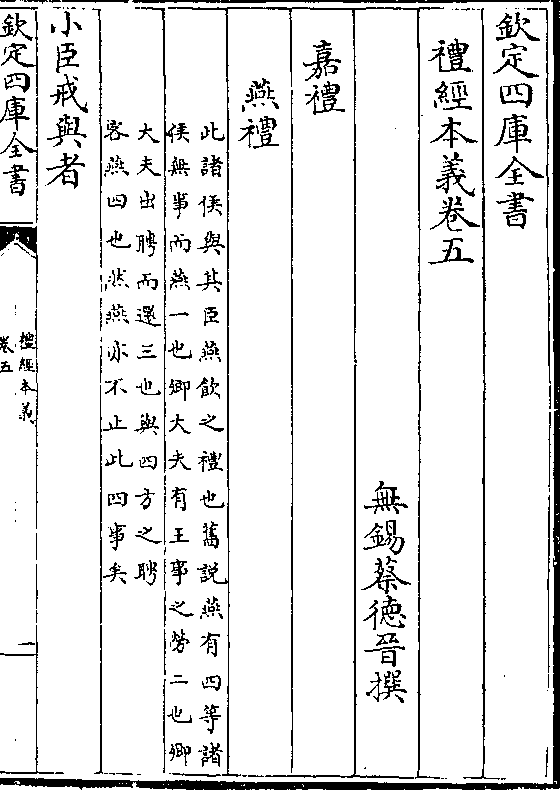 欽定四庫全書
禮經本義卷五
無錫蔡德晉撰
嘉禮
燕禮
此諸侯與其臣燕飲之禮也舊説燕有四等諸
侯無事而燕一也卿大夫有王事之勞二也卿
大夫出聘而還三也與四方之聘
客燕四也然燕亦不止此四事矣
小臣戒與者
欽定四庫全書
禮經本義
卷五
一